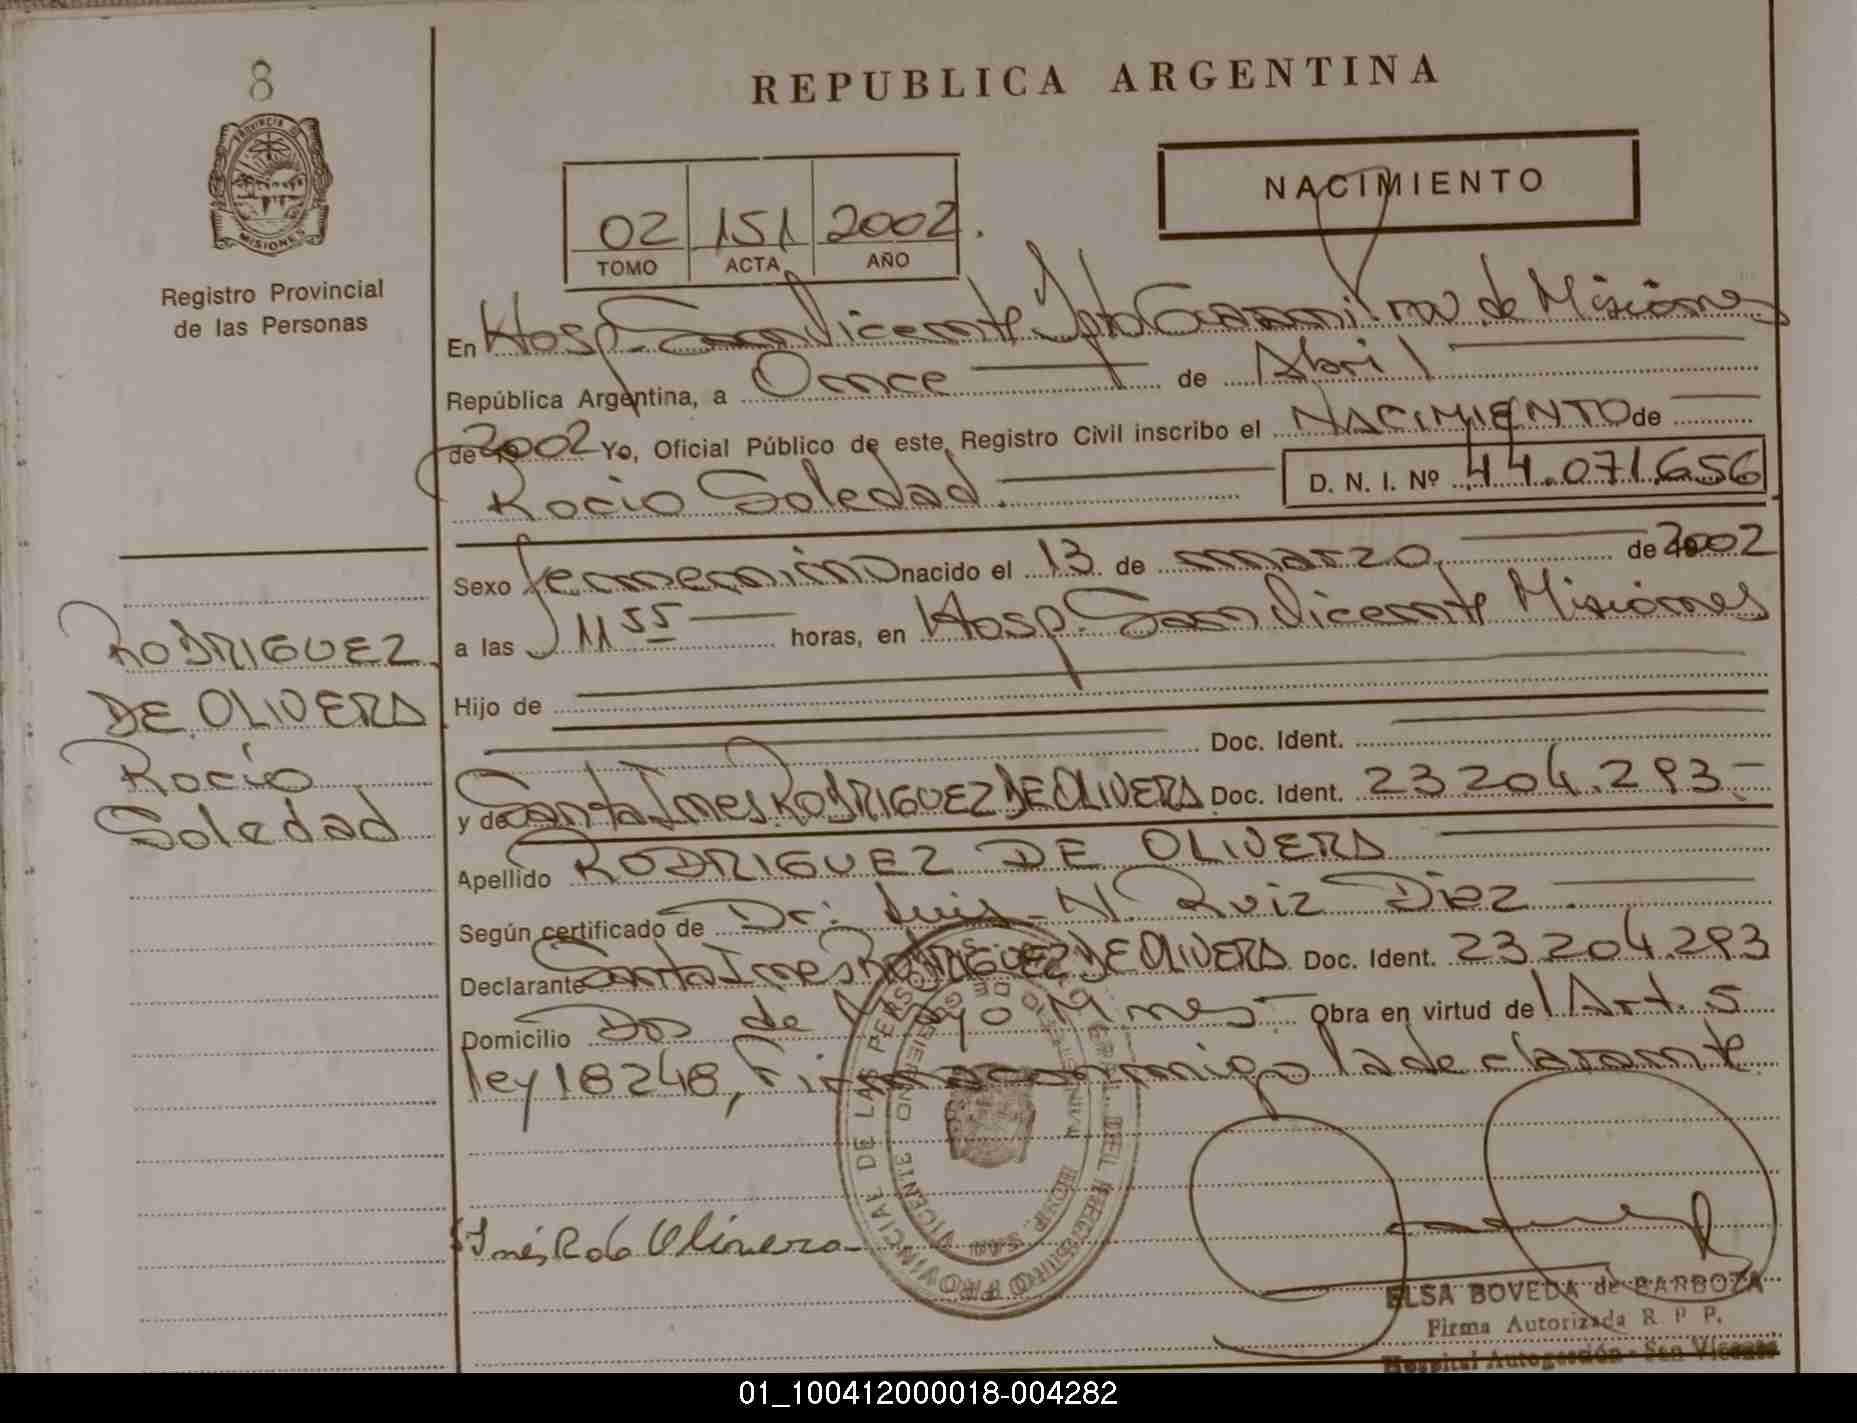 8
REPUBLICA ARGENTINA
PROVINCIA DE
MISIONES
Registro Provincial
de las Personas
02 151 2002.
TOMO ACTA AÑO
NACIMIENTO
En Hosp. San Vicente Dpto Guarani Prov de Misiones
República Argentina, a Once de Abril
de 2002 Yo, Oficial Público de este Registro Civil inscribo el NACIMIENTO de
Rocio Soledad. D. N. I. Nº 44.071.656
Sexo femenino nacido el 13 de marzo de 2002
a las 11 55 horas, en Hosp. San Vicente Misiones
Hijo de
Doc. Ident.
y de Santa Ines RODRIGUEZ DE OLIVERA Doc. Ident. 23 204.293.-
Apellido RODRIGUEZ DE OLIVERA
Según certificado de Dr. Luis N. Ruiz Diez.
Declarante Santa Ines RODRIGUEZ DE OLIVERA Doc. Ident. 23.204.293
Domicilio Dos de Mayo Mnes- Obra en virtud de l Art. 5
ley 18248, Firma conmigo la declarante
RODRIGUEZ
DE OLIVERA
Rocio
Soledad
PROVINCIAL DE LAS PERSONAS
HOSP. SAN VICENTE
S Inés R de Olivera
ELSA BOVEDA de BARBOZA
Firma Autorizada R. P. P.
Hospital Autogestión - San Vicente
01_100412000018-004282